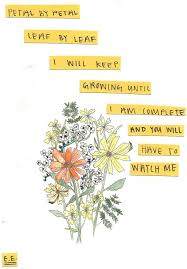 PETAL BY PETAL
LEAF BY LEAF
I WILL KEEP
GROWING UNTIL
I AM COMPLETE
AND YOU WILL
HAVE TO
WATCH ME
E.E.